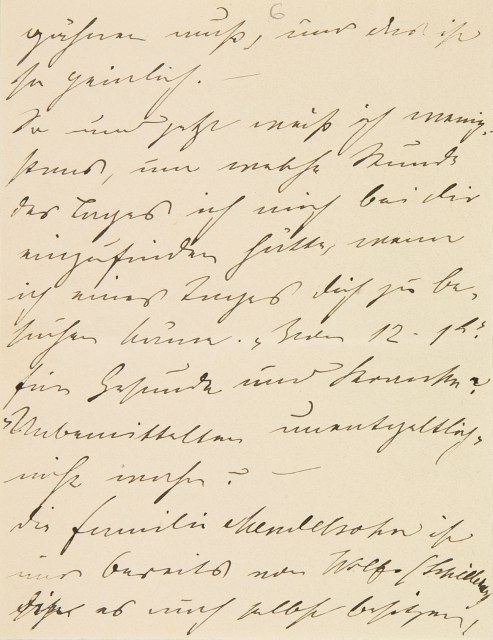 6
gähnen muß, und das ist
so peinlich. —
So und jetzt weiß ich wenig-
stens, um welche Stunde
des Tages ich mich bei dir
einzufinden hätte, wenn
ich eines Tages dich zu be-
suchen käme. „Von 12 - 1h."
für Gesunde und Kranke?
„Unbemittelten unentgeltlich"
nicht wahr? —
die Familie Mendelsohn ist
uns bereits von Wolfs
es auch selbst besitzen,